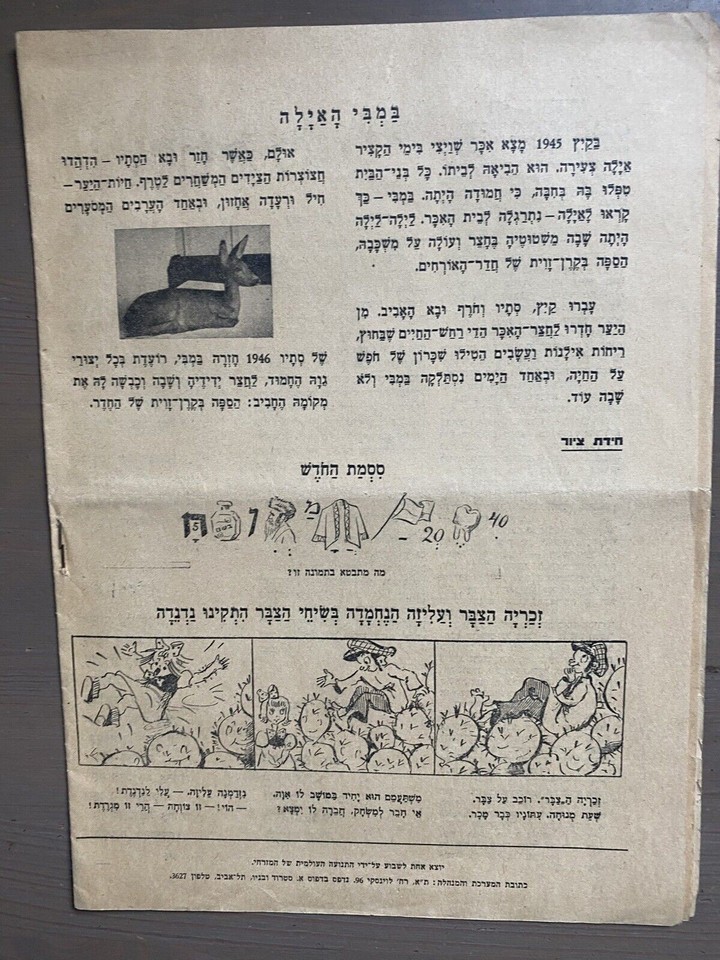 בַּמְבִּי הָאַיָּלָה
בְּקַיִץ 1945 מָצָא אִכָּר שְׁוַיְצִי בִּימֵי הַקָּצִיר
אַיָּלָה צְעִירָה. הוּא הֱבִיאָהּ לְבֵיתוֹ. כָּל בְּנֵי־הַבַּיִת
טִפְּלוּ בָּהּ בְּחִבָּה, כִּי חֲמוּדָה הָיְתָה. בַּמְבִּי – כַּךְ
קָרְאוּ לָאַיָּלָה – נִתְרַגְּלָה לְבֵית הָאִכָּר. לַיְלָה־לַיְלָה
הָיְתָה שָׁבָה מִשִּׁטוּטֶיהָ בֶּחָצֵר וְעוֹלָה עַל מִשְׁכָּבָהּ,
הַסַּפָּה בְּקֶרֶן־זָוִית שֶׁל חֲדַר־הָאוֹרְחִים.
עָבְרוּ קַיִץ, סְתָיו וְחֹרֶף וּבָא הָאָבִיב. מִן
הַיַּעַר חָדְרוּ לַחֲצַר־הָאִכָּר הֵדֵי רַחַשׁ־הַחַיִּים שֶׁבַּחוּץ,
רֵיחוֹת אִילָנוֹת וַעֲשָׂבִים הִטִּילוּ שִׁכְּרוֹן שֶׁל חֹפֶשׁ
עַל הַחַיָּה, וּבְאַחַד הַיָּמִים נִסְתַּלְּקָה בַּמְבִּי וְלֹא
שָׁבָה עוֹד.
אוּלָם, כַּאֲשֶׁר חָזַר וּבָא הַסְּתָיו – הִדְהֲדוּ
חֲצוֹצְרוֹת הַצַּיָּדִים הַמְשַׁחֲרִים לַטֶּרֶף. חַיּוֹת־הַיַּעַר –
חִיל וּרְעָדָה אֲחָזוּן, וּבְאַחַד הָעֲרָבִים הַמְסֹעָרִים
שֶׁל סְתָיו 1946 חָזְרָה בַּמְבִּי, רוֹעֶדֶת בְּכָל יְצוּרֵי
גֵוָהּ הֶחָמוּד, לַחֲצַר יְדִידֶיהָ וְשָׁבָה וְכָבְשָׁה לָהּ אֶת
מְקוֹמָהּ הֶחָבִיב: הַסַּפָּה בְּקֶרֶן־זָוִית שֶׁל הַחֶדֶר.
חידת ציור
סִסְמַת הַחֹדֶשׁ
40
20
מַ
ן
בשם
5
מה מתבטא בתמונה זו?
זְכַרְיָה הַצַּבָּר וְעַלִּיזָה הַנֶּחְמָדָה בְּשִׂיחֵי הַצַּבָּר הִתְקִינוּ נַדְנֵדָה
זְכַרְיָה הַ„צַּבָּר". רוֹכֵב עַל צַבָּר.
שְׁעַת מְנוּחָה. עִתּוֹנָיו כְּבָר מָכַר.
מִשְׁתַּעֲמֵם הוּא יָחִיד בַּמּוֹשָׁב לוֹ אִוָּה.
אֵי חָבֵר לְמִשְׂחָק, חֲבֵרָה לוֹ יִמְצָא?
נִזְדַּמְּנָה עַלִּיזָה. — עֲלִי לַנַּדְנֶדֶת!
— הוֹי! — זוֹ צוֹוַחַת — הֲרֵי זוֹ מְגָרֶדֶת!
יוצא אחת לשבוע על־ידי התנועה העולמית של המזרחי.
כתובת המערכת והמנהלה: ת"א, רח' לוינסקי 96. נדפס בדפוס א. סטרוד ובניו, תל־אביב, טלפון 3627.